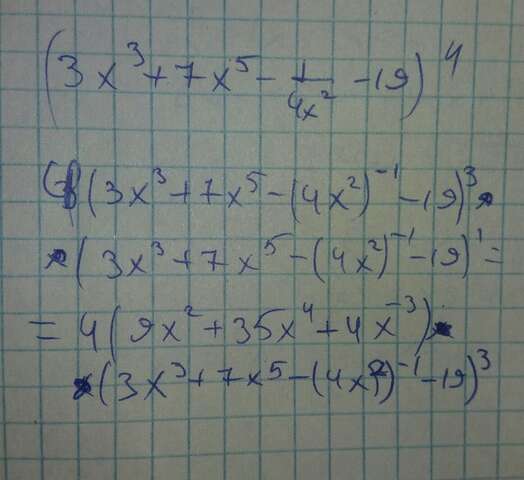 (3x³+7x⁵-1/4x²-19)⁴
4(3x³+7x⁵-(4x²)⁻¹-19)³·
·(3x³+7x⁵-(4x²)⁻¹-19)'=
=4(9x²+35x⁴+4x⁻³)·
·(3x³+7x⁵-(4x²)⁻¹-19)³